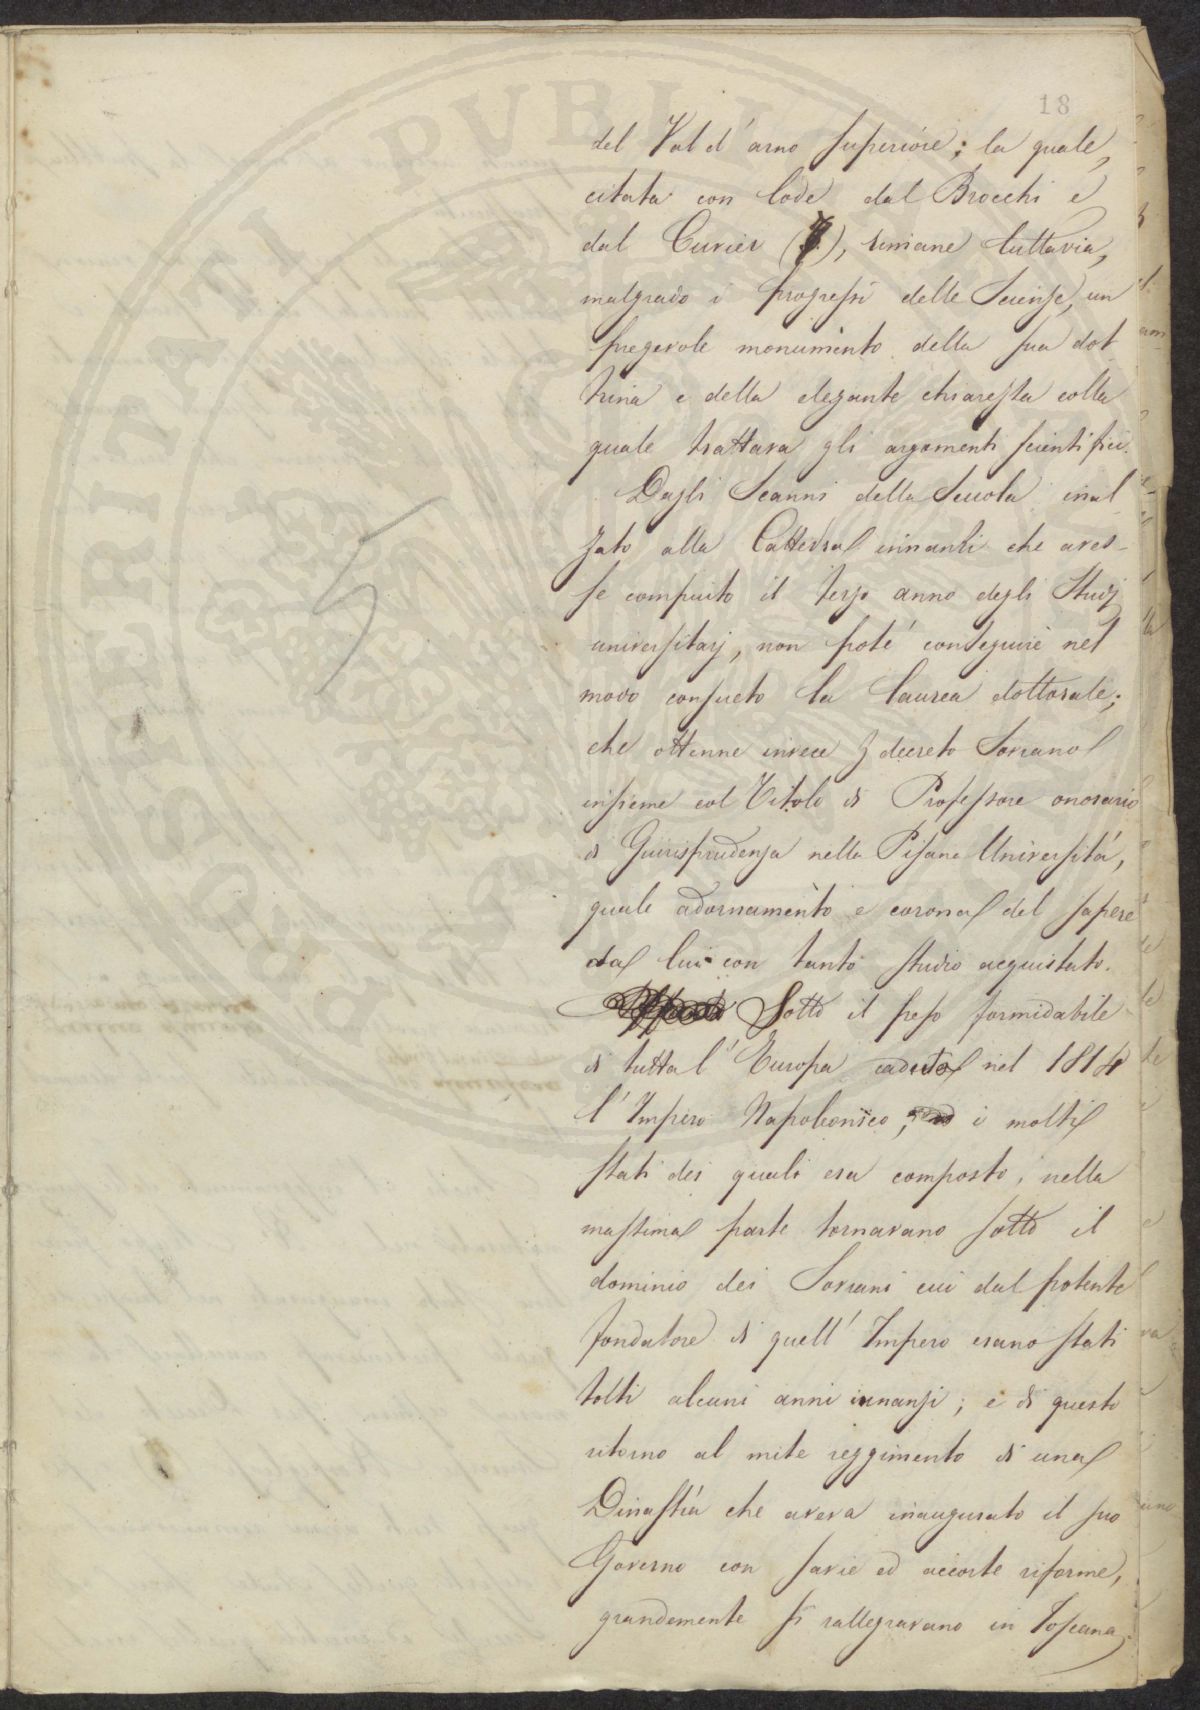 18
del Val d'arno superiore; la quale,
citata con lode dal Brocchi e
dal Cuvier (7), rimane tuttavia,
malgrado i progressi delle Scienze, un
pregevole monumento della sua dot
trina e della elegante chiarezza colla
quale trattava gli argomenti scientifici.
Dagli Scanni della Scuola inal
zato alla Cattedra innanzi che aves-
se compiuto il terzo anno degli Studj
universitarj, non poté conseguire nel
modo consueto la laurea dottorale;
che ottenne invece decreto Sovrano
insieme col Titolo di Professore onorario
di Guirisprudenza nella Pisana Università,
quale adornamento e corona del sapere
da lui con tanto studio acquistato.
Sotto il peso formidabile
di tutta l'Europa caduto nel 1814
l'Impero Napoleonico, i molti
stati dei quali era composto, nella
massima parte tornavano sotto il
dominio dei Sovrani cui dal potente
fondatore di quell'Impero erano stati
tolti alcuni anni innanzi; e di questo
ritorno al mite reggimento di una
Dinastia che aveva inaugurato il suo
Governo con savie ed accorte riforme,
grandemente si rallegravano in Toscana